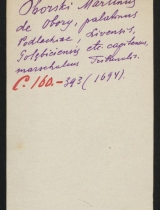 Oborski Martinus
de Obory, palatinus
Podlachiae, Livensis,
etc. capitaneus,
marschalcus Tribunalis.
C. 160.-393 (1694).